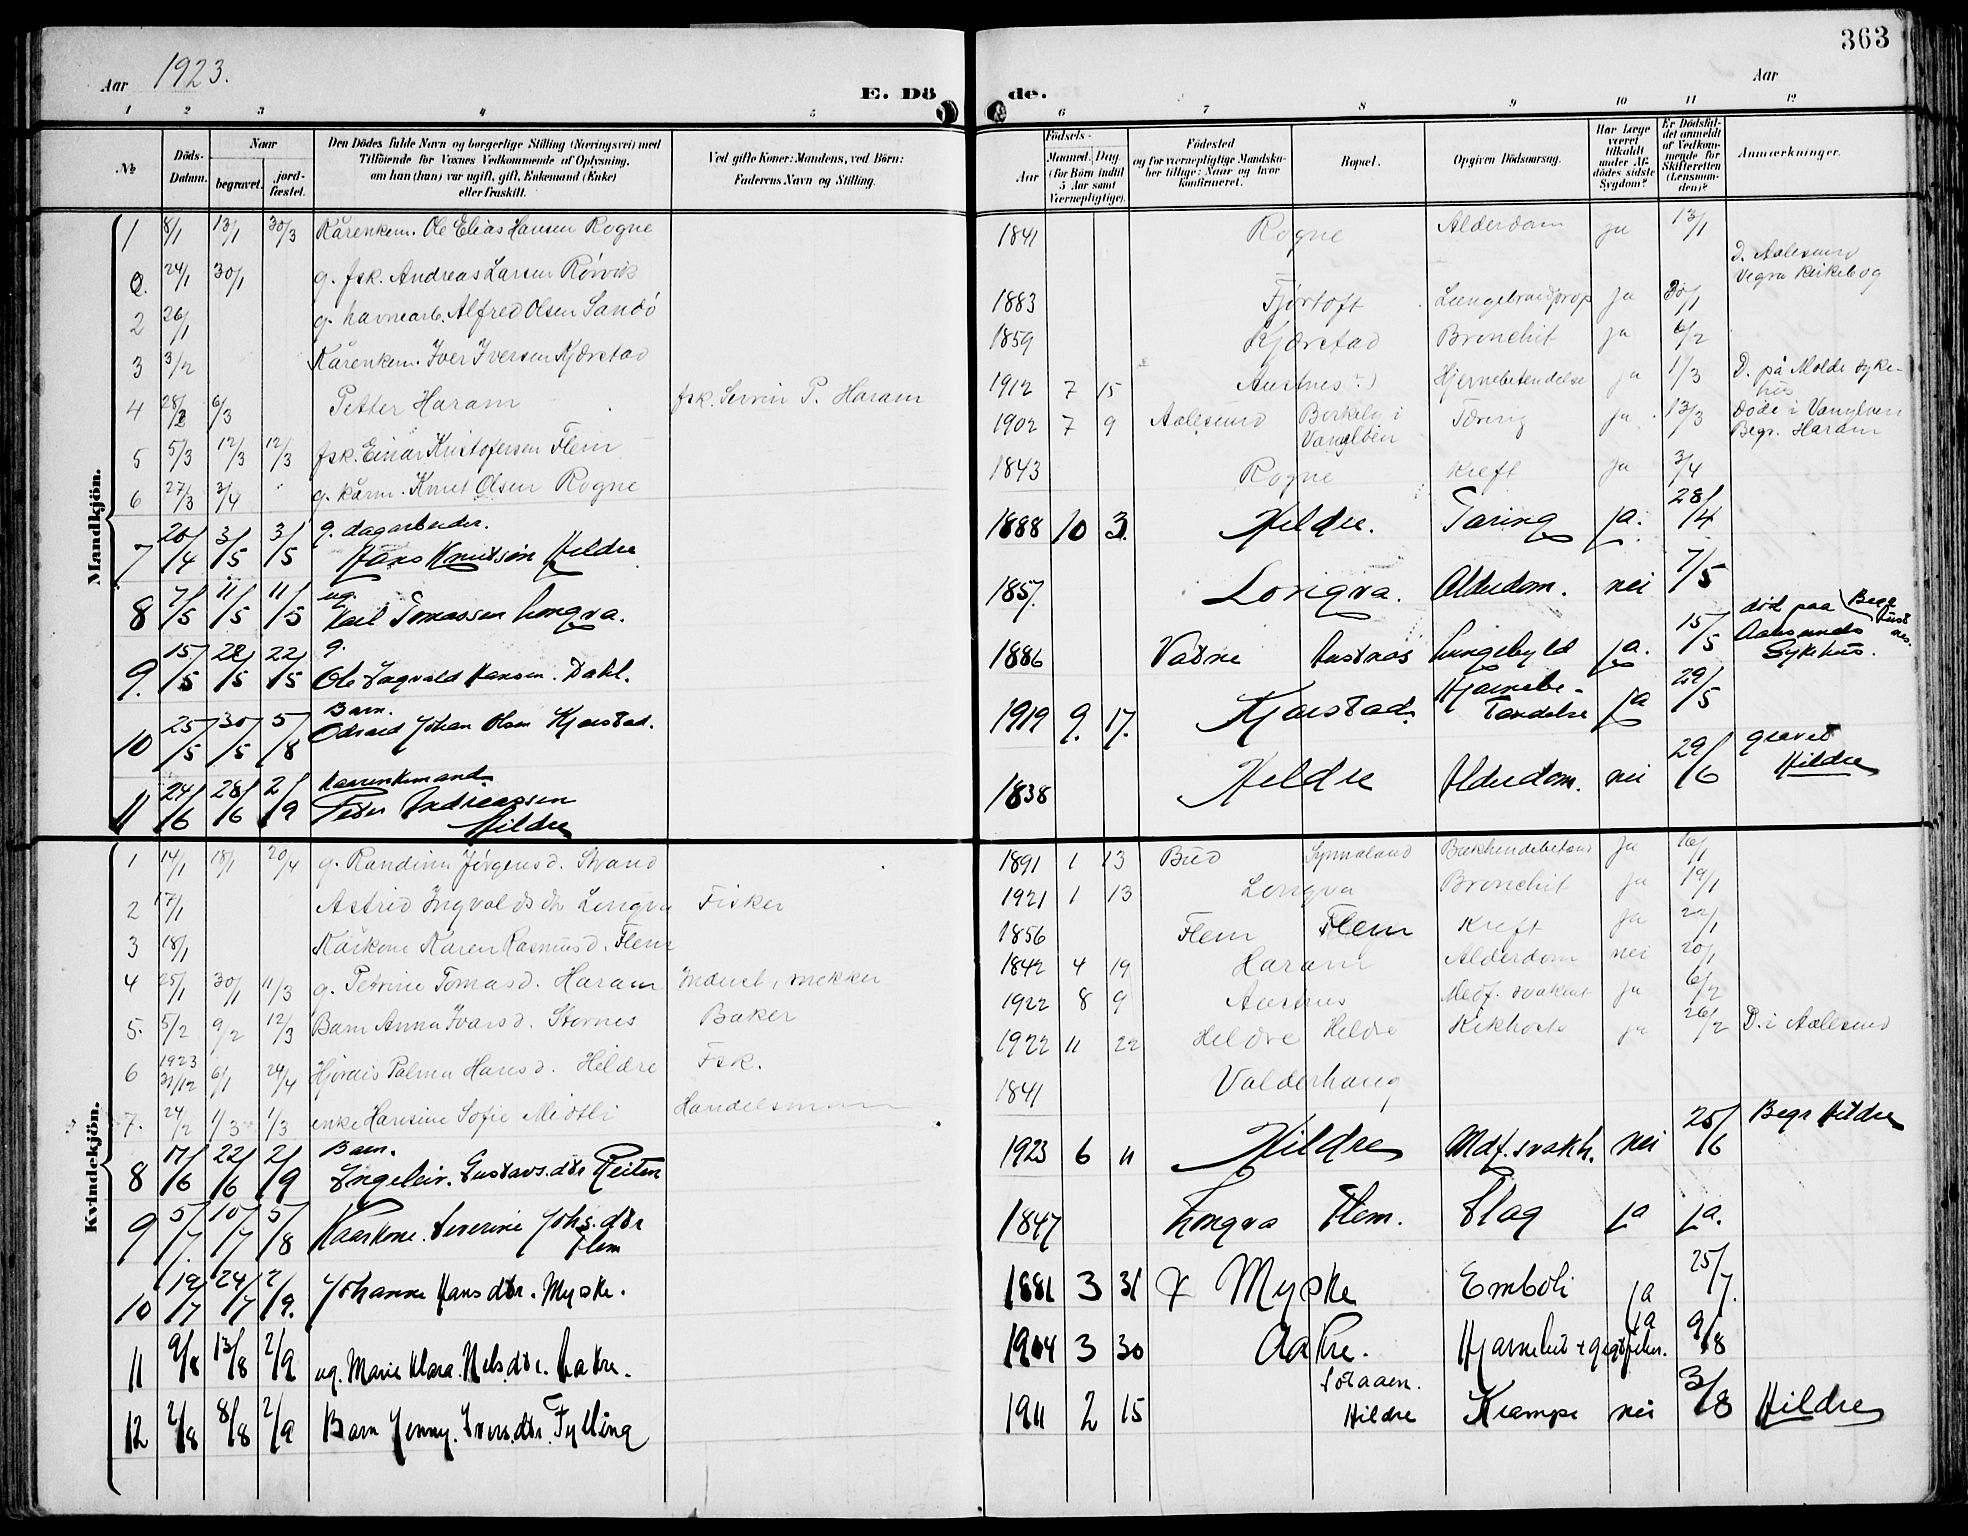 363
Aar 1923.
E. Dö
de.
Aar
1 2 3 4 5 6 7 8 9 10 11 12
№
Döds-Datum.
Naar
begravet.
jord-fæstet.
Den Dödes fulde Navn og borgerlige Stilling (Næringsvei) med
Tilföiende for Voxnes Vedkommende af Oplysning,
om han (hun) var ugift, gift, Enkemand (Enke)
eller fraskilt.
Ved gifte Koner: Mandens, ved Börn:
Faderens Navn og Stilling.
Födsels-
Aar
Maaned. Dag
(for Börn indtil
5 Aar samt
Værnepligtige).
Födested
og for værnepligtige Mandska-
ber tillige: Naar og hvor
konfirmeret.
Bopæl.
Opgiven Dödsaarsag.
Har Læge
været
tilkaldt
under Af-
dödes sidste
Sygdom?
Er Dödsfal-
det anmeldt
af Vedkom-
mende for
Skifteretten
(Lensman-
den)?
Anmærkninger.
Mandkjön.
1 8/1 13/1 30/3 Kårenkem. Ole Elias Hansen Rogne 1841 Rogne Alderdom ja 13/1
2. 24/1 30/1 g. fsk. Andreas Larsen Rörvik
D. Aalesund
Vegra kirkebog
2 26/1 g. havnearb. Alfred Olsen Sandö 1883 Fjörtoft ja 30/1
3 3/2 Kårenkem. Iver Iversen Kjærstad 1859 Kjærstad Bronchit ja 6/2
4 28/2 6/3 Petter Haram fsk. Serin P. Haram 1912 7 15 Austnes Hjernebetendelse ja 1/3 D. på Molde syke-
hus
5 5/3 12/3 12/3 fsk. Einar Kristofersen Flem 1902 7 9 Aalesund Berkeby i
Vanylven Tæring ja 13/3 Döde i Vanylven
Begr. Haram
6 27/3 3/4 g. kårm. Knut Olsen Rogne 1843 Rogne Kreft ja 3/4
7 20/4 3/5 3/5 g. dagarbeider.
Hans Knutsön Hildre 1888 10 3. Hildre. Taring ja. 28/4
8 7/5 11/5 11/5 ug.
Karl Tomassen Longva. 1857. Longva. Alderdom. nei 7/5
9. 15/5 22/5 22/5 g.
Ole Ingvald Hansen. Dahl. 1886 Vatne Austnes Lungebyld ja. 15/5 död paa
Aalesunds
Sykehus.
Begr
Aust
nes.
10 25/5 30/5 5/8 Barn.
Odvard Johan Olsen Kjærstad. 1919 9. 17. Kjærstad. Hjernebe-
tendelse ja 29/5
11 24/6 28/6 2/9 Kaarenkemand
Peder Andreassen
Hildre 1838 Hildre Alderdom. nei 29/6 gravet
Hildre
Kvindekjön.
1 14/1 18/1 20/4 g. Randine Jörgensd. Strand 1891 1 13 Bud Synnaland ja 16/1
2 17/1 Astrid Ingvaldsdr Longva Fisker 1921 1 13 Longva Bronchit ja 19/1
3 18/1 Kårkone Karen Rasmusd. Flem 1856 Flem Flem Kreft ja 22/1
4 25/1 30/1 11/3 g. Petrine Tomasd. Haram 1842 4 19 Haram Alderdom nei 20/1
5. 5/2 9/2 12/3 Barn Anna Ivarsd. Stornes Baker 1922 8 9 Austnes Medf. svakhet ja 6/2
6 1923
31/12 6/1 24/4 Hjördis Palma Hansd. Hildre Fsk. 1922 11 22 Hildre Hildre Kikhoste ja 26/2 D. i Aalesund
7. 24/2 1/3 1/3 enke Hansine Sofie Midtli Handelsmann 1841 Valderhaug
8 17/6 22/6 2/9 Barn.
Ingeleiv. Gustavs.dtr Reiten 1923 6 11 Hildre Mdf. svakh. nei 25/6 Begr Hildre
9 5/7. 10/7 5/8 Kaarkone. Severine Johs.dtr
Flem 1847 Longva Flem. Slag ja ja.
10 19/7 24/7 2/9. Johanne Hansdtr. Myske. 1881 3 31 x Myske Emboli ja 25/7.
11 9/8 13/8 2/9 ug. Marie Klara. Nels.dtr. Aakre. 1904 3 30 Aakre. ja 9/8
12 2/8 8/8 2/9 Barn Jenny. Ivers.dtr. Fylling 1911 2 15
Hildre Krampe nei 3/8 Hildre